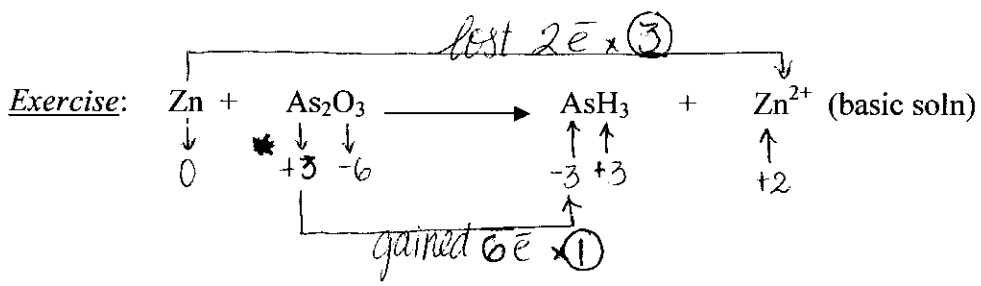 lost 2ē × ③
Exercise: Zn + As₂O₃ ⟶ AsH₃ + Zn²⁺ (basic soln)
0 +3 -6 -3 +3 +2
gained 6ē × ①